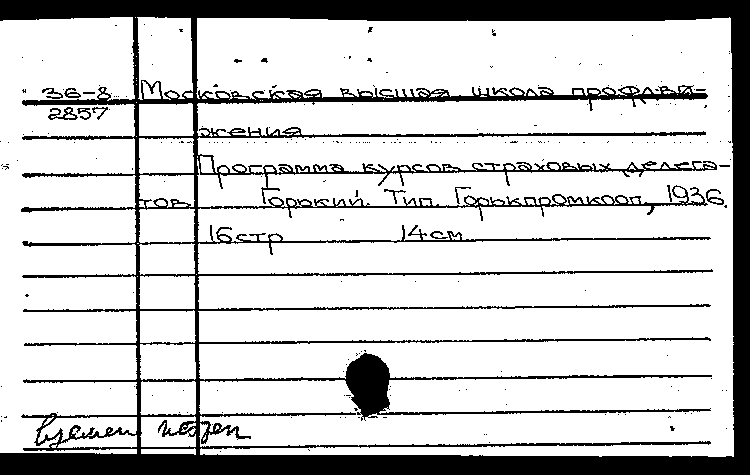 36-8 Московская высшая школа профдви-
2857
жения
Программа курсов страховых делега-
тов Горький. Тип. Горькпромкооп, 1936.
16 стр 14 см